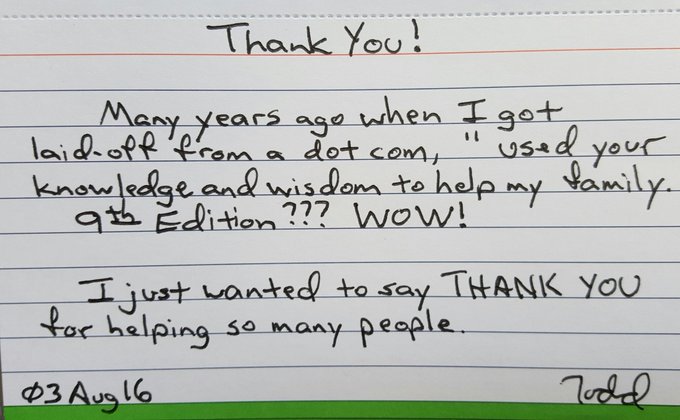 Thank You!
Many years ago when I got
laid-off from a dot com, " used your
knowledge and wisdom to help my family.
9th Edition??? WOW!
I just wanted to say THANK YOU
for helping so many people.
Ø3 Aug 16
Todd